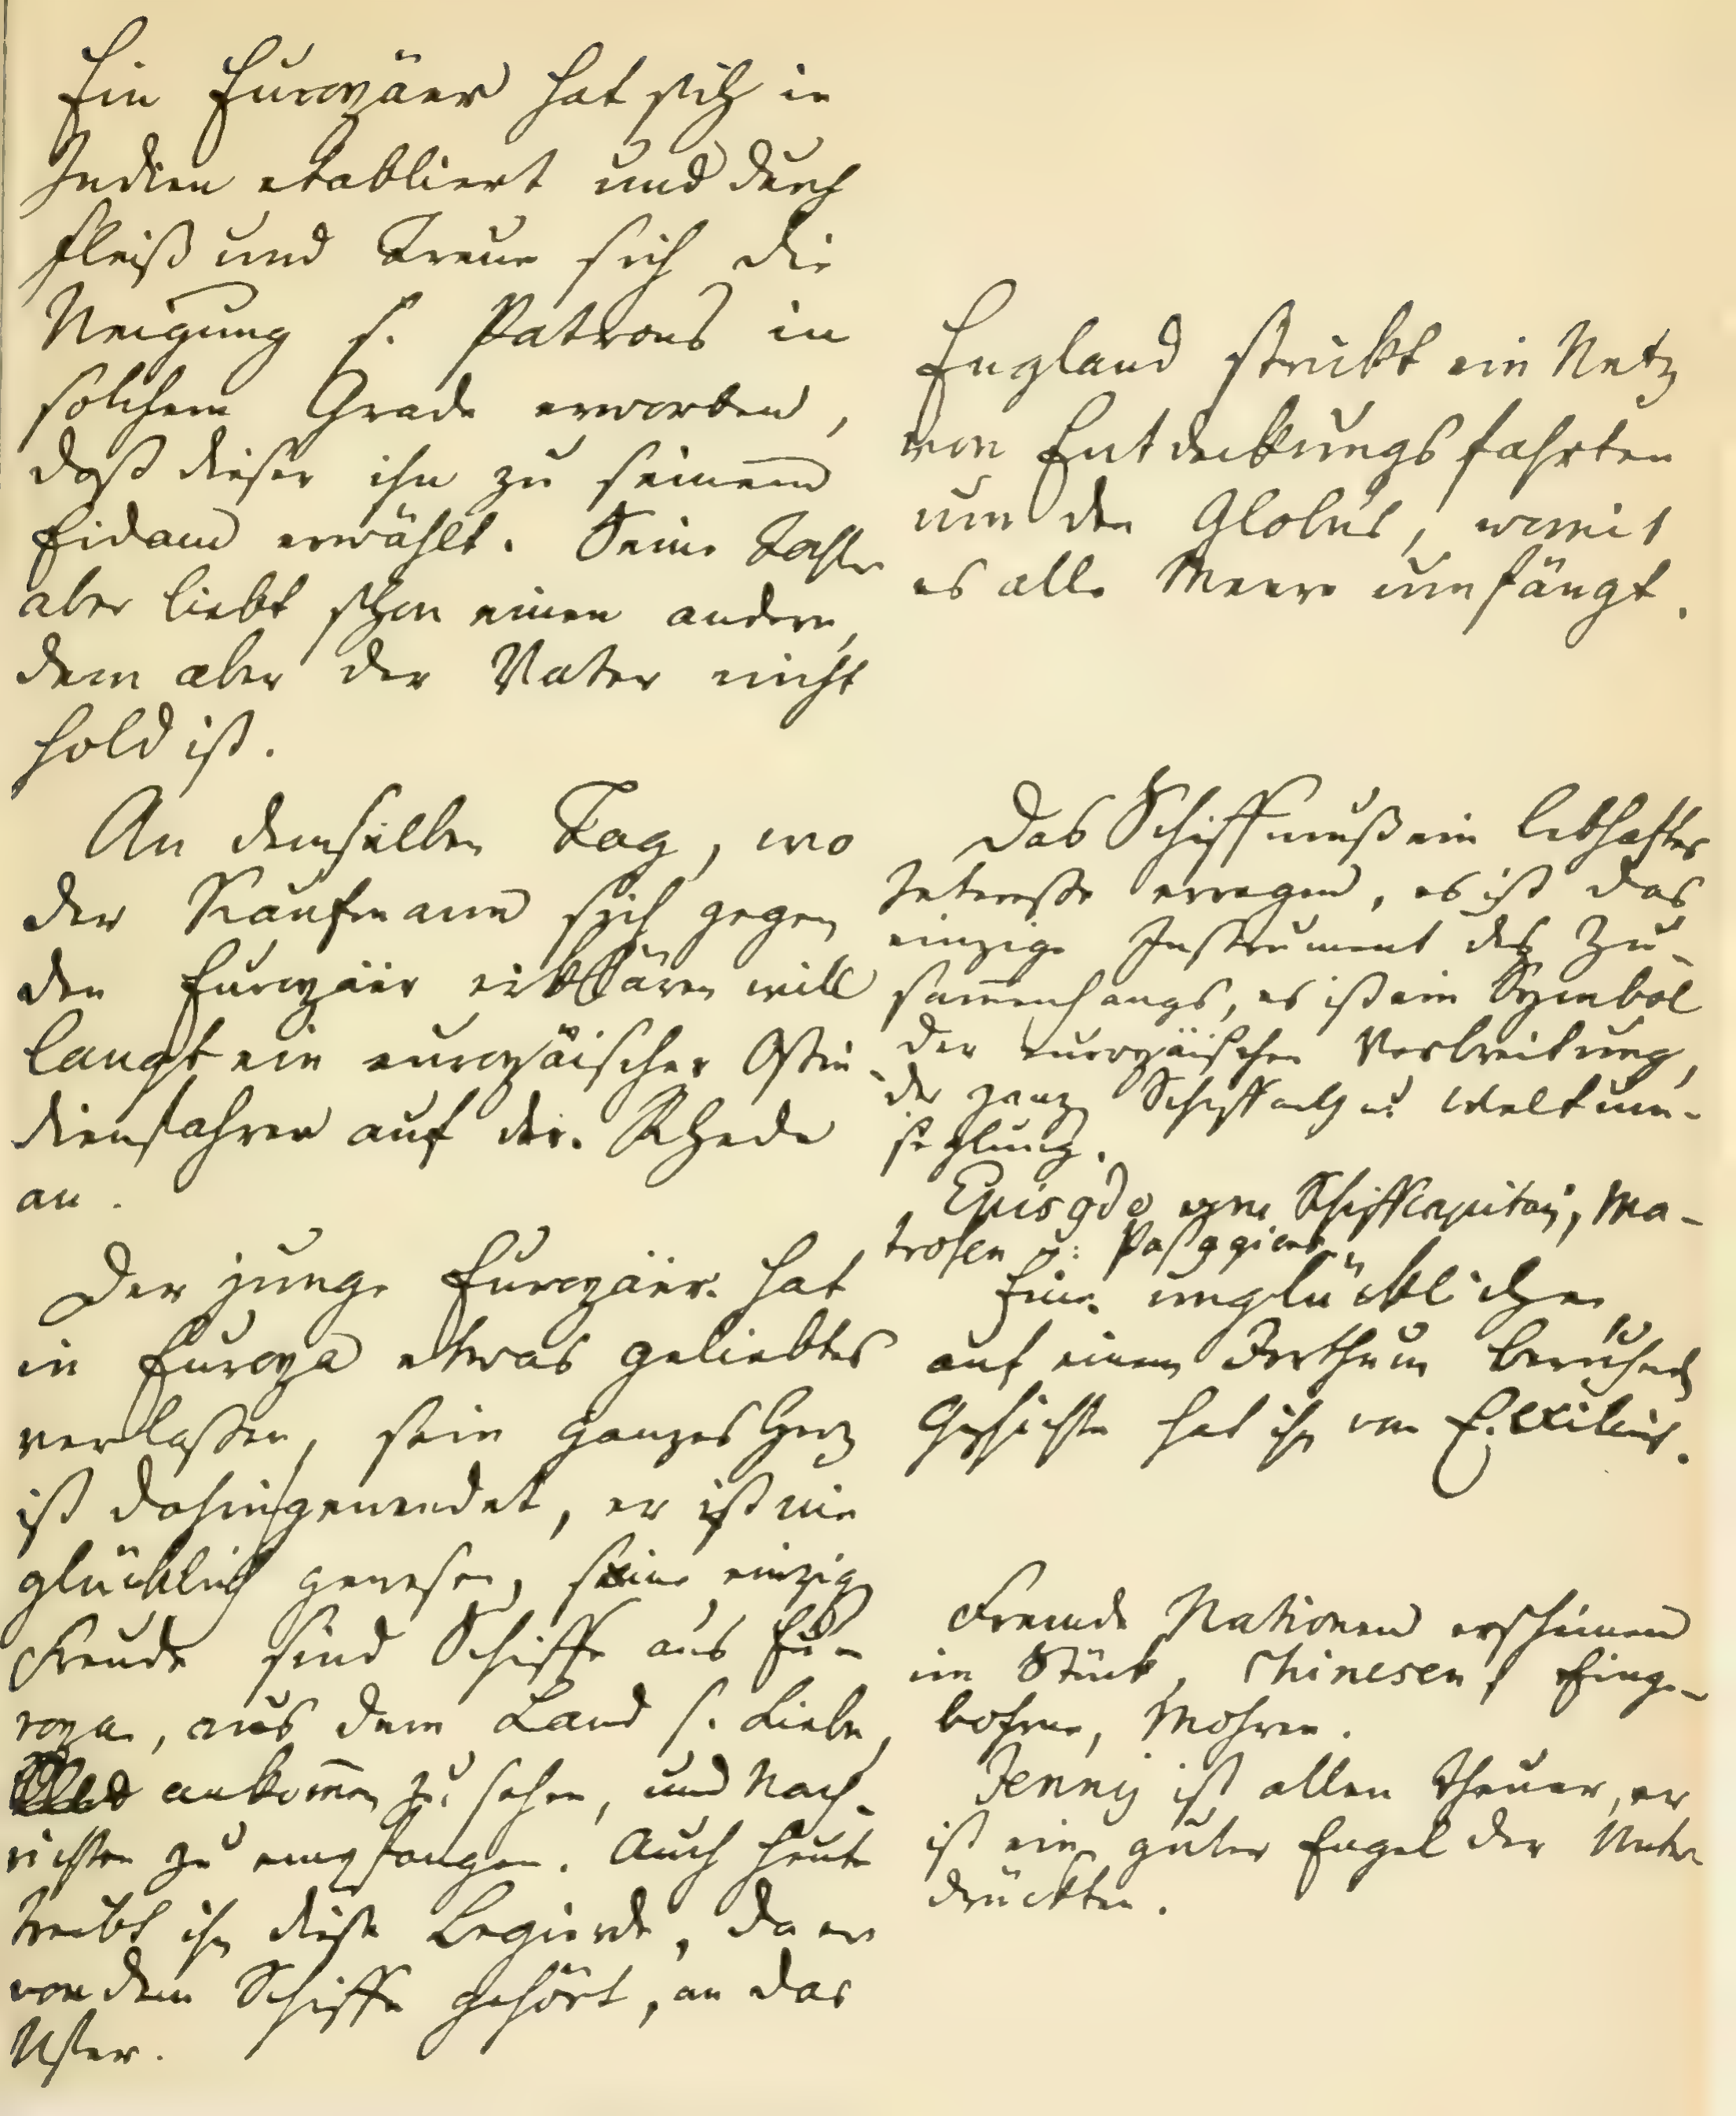 Ein Europäer hat sich in
Indien etabliert und durch
Fleiß und Treue sich die
Neigung s. Patrons in
solchem Grade erworben,
daß dieser ihn zu seinem
Eidam erwählt. Seine Tochter
aber liebt schon einen andern,
dem aber der Vater nicht
hold ist.
An demselben Tag, wo
der Kaufmann sich gegen
den Europäer erklären will
langt ein europäischer Ostin-
dienfahrer auf der Rhede
an.
Der junge Europäer hat
in Europa etwas geliebtes
verlaßen, sein ganzes Herz
ist dahingewendet, er ist nie
glücklich gewesen, seine einzige
Freude sind Schiffe aus Eu-
ropa, aus dem Land s. Liebe,
ankom̄en zu sehen, und Nach-
richten zu empfangen. Auch heute
treibt ihn diese Begierde, da er
von dem Schiffe gehört, an das
Ufer.
England strickt ein Netz
von Entdeckungsfahrten
um den Globus, womit
es alle Meere umfängt.
Das Schiff muß ein lebhaftes
Intereße erregen, es ist das
einzige Instrument des Zu-
sam̄enhangs, es ist ein Symbol
der europäischen Verbreitung,
der ganzen Schiffarth u: Weltum-
seglung.
Episode vom Schiffkapitain, Ma-
trosen u: Paßagieren.
Eine unglückliche
auf einem Irrthum beruhende
Geschichte hat ihn von E. exiliert.
Fremde Nationen erscheinen
im Stück, Chinesen, Einge-
bohrne, Mohren.
Jenny ist allen theuer, er
ist ein guter Engel der Unter-
drückten.